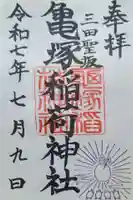 奉拝
三田聖坂
亀塚稲荷神社
令和七年七月九日